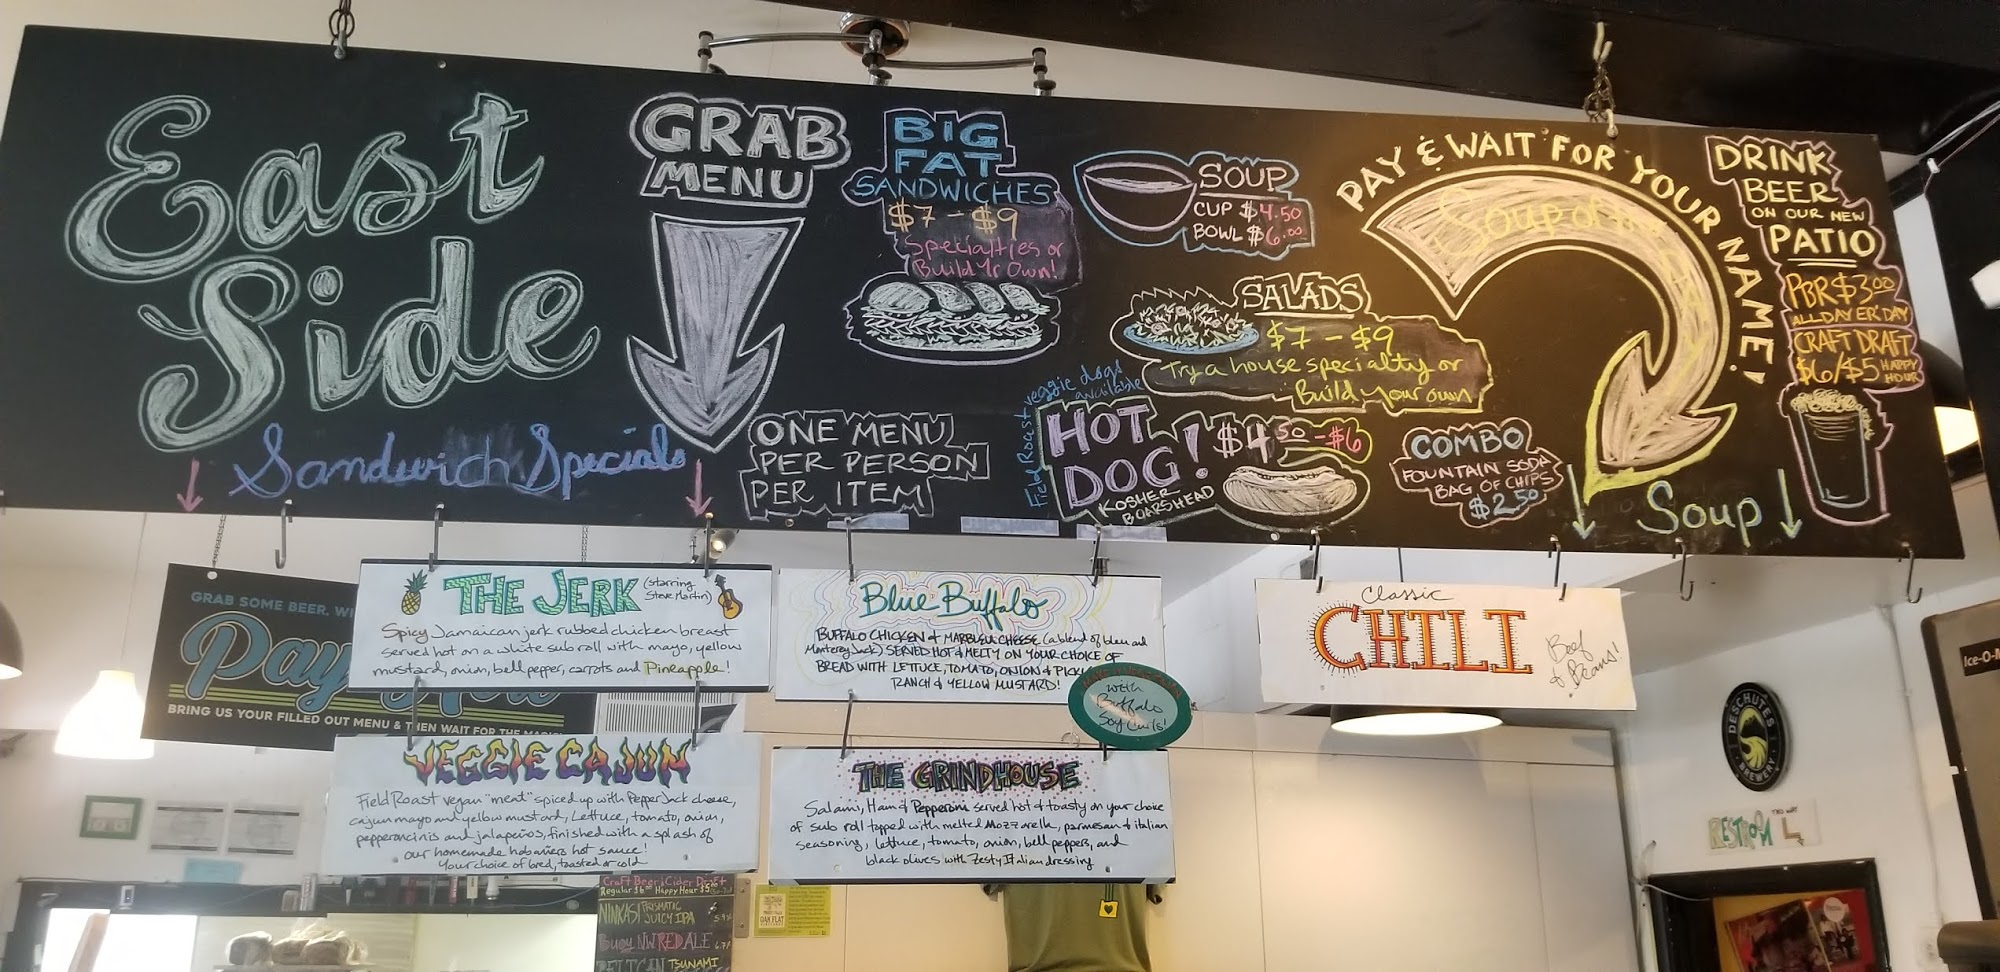 East
Side
Sandwich Specials
GRAB
MENU
ONE MENU
PER PERSON
PER ITEM
BIG
FAT
SANDWICHES
$7 - $9
Specialties or
Build Yr Own!
SOUP
CUP $4.50
BOWL $6.00
SALADS
$7 - $9
Try a house specialty or
Build your own
Field Roast veggie dogs
available
HOT
DOG!
$4.50 - $6
KOSHER
BOARSHEAD
COMBO
FOUNTAIN SODA
BAG OF CHIPS
$2.50
PAY & WAIT FOR YOUR NAME!
Soup of
Soup
DRINK
BEER
ON OUR NEW
PATIO
PBR $3.00
ALL DAY ER'DAY
CRAFT DRAFT
$6/$5 HAPPY
HOUR
GRAB SOME BEER,
Pay
BRING US YOUR FILLED OUT MENU & THEN WAIT FOR THE
THE JERK
(starring
Steve Martin)
Spicy Jamaican jerk rubbed chicken breast
served hot on a white sub roll with mayo, yellow
mustard, onion, bell pepper, carrots and Pineapple!
Blue Buffalo
BUFFALO CHICKEN & MARBLEU CHEESE (a blend of bleu and
Monterey Jack) SERVED HOT & MELTY ON YOUR CHOICE OF
BREAD WITH LETTUCE, TOMATO, ONION &
RANCH & YELLOW MUSTARD!
with
Buffalo
Soy Curls!
Classic
CHILI
Beef
& Beans!
VEGGIE CAJUN
Field Roast vegan "meat" spiced up with Pepper Jack cheese,
cajun mayo and yellow mustard, Lettuce, tomato, onion,
pepperoncinis and jalapeños, finished with a splash of
our homemade habañero hot sauce!
Your choice of bred, toasted or cold
THE GRINDHOUSE
Salami, Ham & Pepperoni served hot & toasty on your choice
of sub roll topped with melted Mozzarella, parmesan & italian
seasoning, lettuce, tomato, onion, bell peppers, and
black olives with Zesty Italian dressing
Craft Beer & Cider Draft
Regular $6.00 Happy Hour $5.00
NINKASI PRISMATIC
JUICY IPA
Buoy NW RED ALE
PELICAN TSUNAMI
OAK FLAT
DESCHUTES
BREWERY
Ice-O-M
THIS WAY
RESTROOM